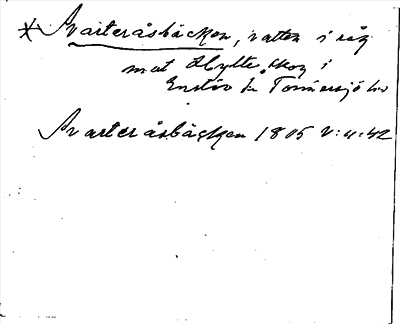 * Svarteråsbäcken, vatten i råg
mot Hylte skog i
Enslöv sn Tönnersjö hd
Svarteråsbäcken 1805 V:u:42